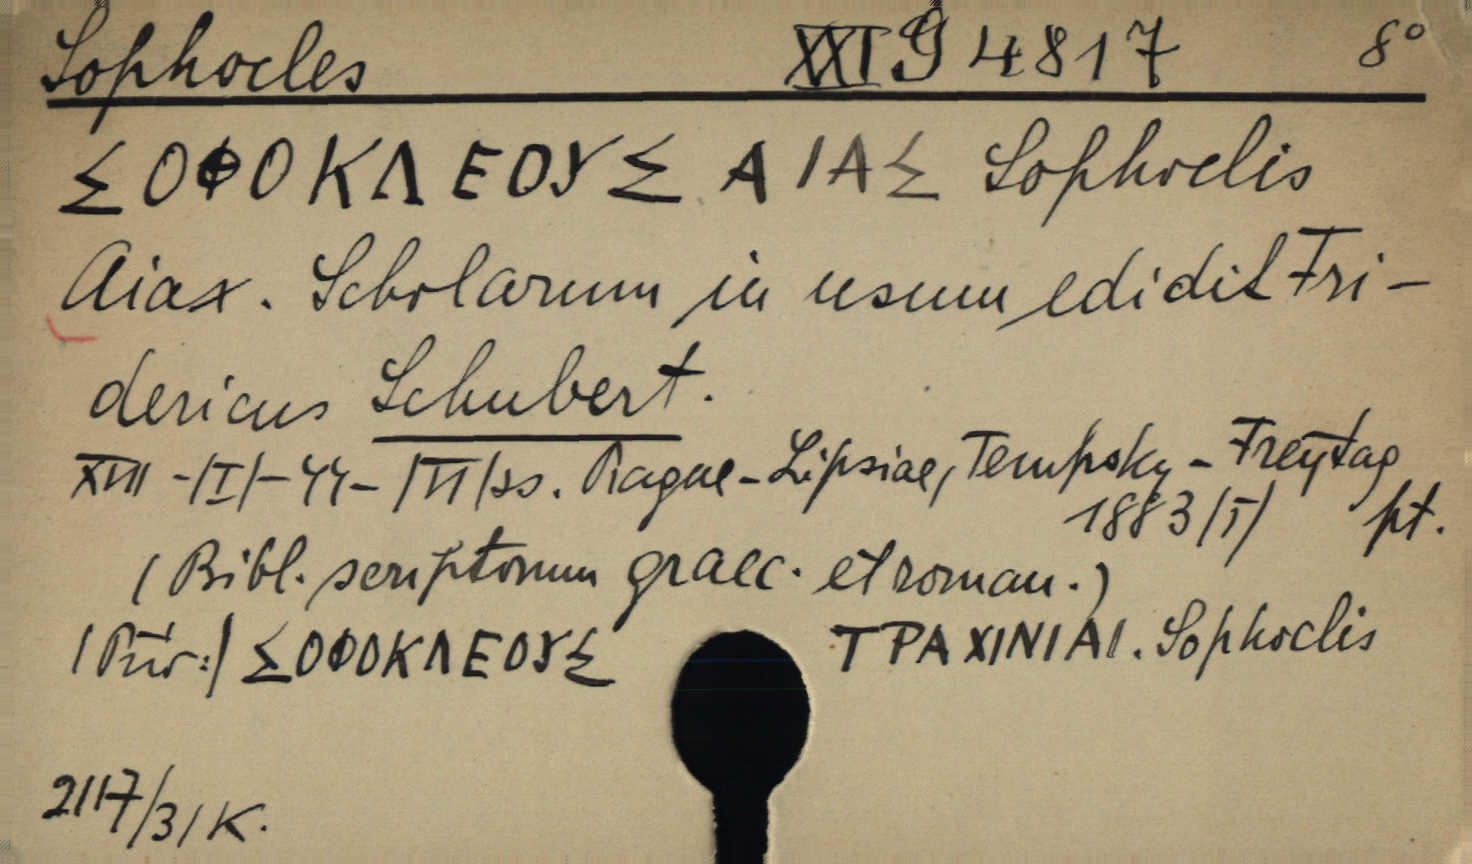 Sophocles XXI G 4817 8°
ΣΟΦΟΚΛΕΟΥΣ ΑΙΑΣ Sophoclis
Aiax. Scholarum in usum edidit Fri-
dericus Schubert.
XVII -/I/-44-/III/ss. Pragae-Lipsiae, Tempsky-Freytag
1883/I/ pt.
(Bibl. scriptorum graec. et roman.)
/Prir:/ ΣΟΦΟΚΛΕΟΥΣ ΤΡΑΧΙΝΙΑΙ. Sophoclis
2117/31 K.